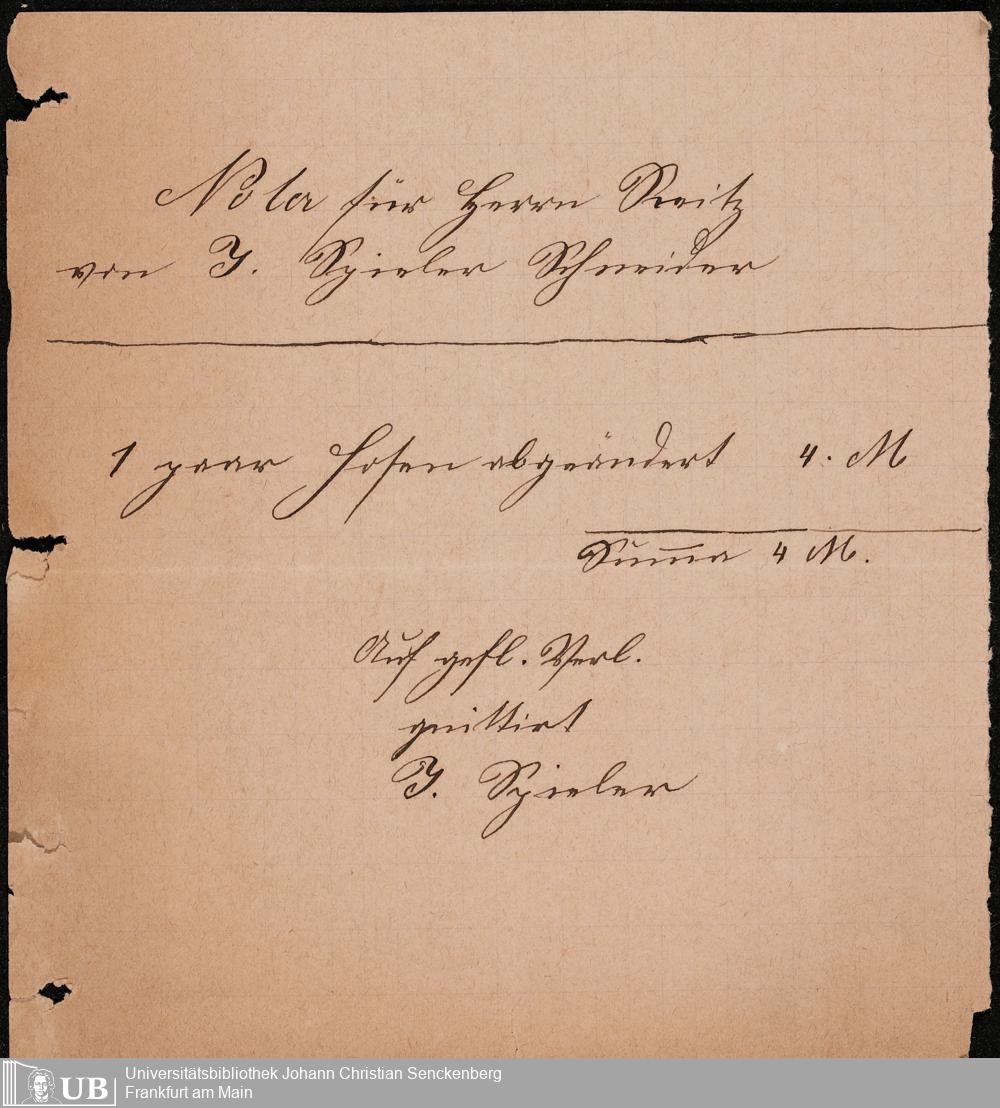 Nota für Herrn Reitz
von J. Spieler Schneider
1 paar Hosen abgeändert 4. M
Summa 4 M.
Auf gefl. Verl.
quittirt
J. Spieler
UB Universitätsbibliothek Johann Christian Senckenberg
Frankfurt am Main